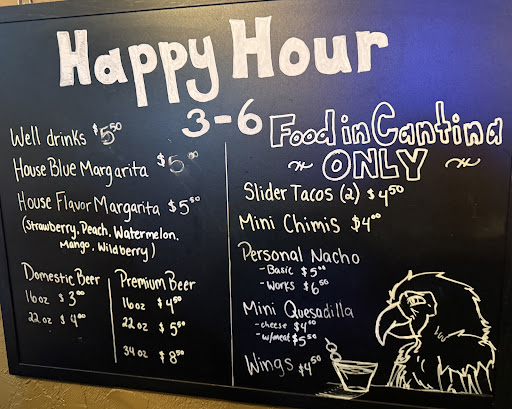 Happy Hour
3-6
Well drinks $5.50
House Blue Margarita $5.00
House Flavor Margarita $5.50
(Strawberry, Peach, Watermelon,
Mango, Wildberry)
Domestic Beer
16oz $3.00
22oz $4.00
Premium Beer
16oz $4.50
22oz $5.50
34oz $8.50
Food in Cantina
~ ONLY ~
Slider Tacos (2) $4.50
Mini Chimis $4.00
Personal Nacho
- Basic $5.00
- Works $6.50
Mini Quesadilla
- cheese $4.00
- w/meat $5.50
Wings $4.50